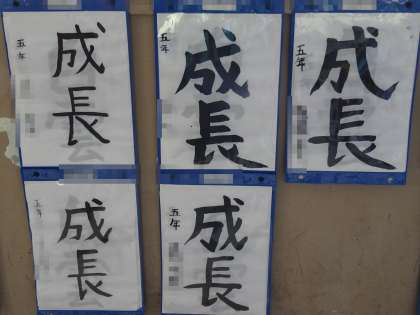 成長
五年
成長
五年
成長
五年
成長
五年
成長
五年